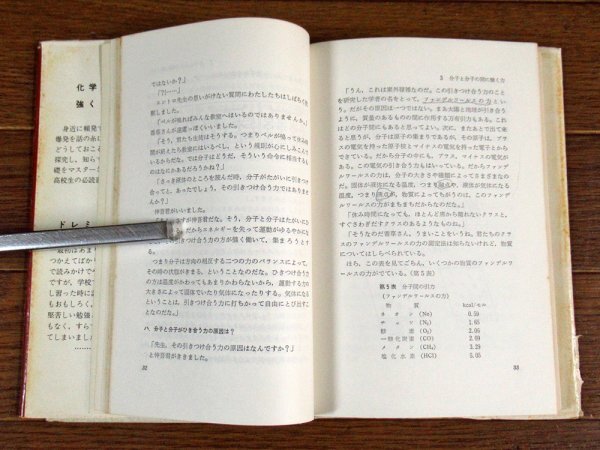 化学
強く
身近に頻発
爆発を話の糸
どうしておこ
探究し、知ら
礎をマスター
高校生の必読
ドレミ
最初はあま
つかえてばか
で読みかけで
ですが、学校
し習った時に
もおもしろく、
堅苦しい勉強
もなく、すら
てしまいました
ではないか？」
「？！……」
エントロ先生の思いがけない質問にわたしたちはしばらく
「ベルが鳴ればみんな教室へはいるのではありませんか。」
「そう、君たち生徒はそうする。つまりベルが鳴って休みの
間が終ったら教室にはいるべし、という規則が心にしみこんで
いるからだな。では分子はどうだ、そういう命令に相当するも
のはなにかあるだろうかね？」
「さっき液体のところを読んだ時、分子がたがいに引きつけ
合ってと、あったでしょう。その引きつけ合う力ではありませ
んか？」
仲音君がいいました。
つまる方向の相反する二つの力のバランスによって、
その時の状態がきまる、ということなのだな。ひきつけ合う力
の方は温度がかわってもあまりかわらないから、運動する力の
大きさによって固体でいたり液体でいたりする。気体になる
ということは、引きつけ合う力に打ちかって自由にとび出すこ
となのだ。」
ハ．分子と分子がひき合う力の原因は？
「先生、その引きつけ合う力の原因はなんですか？」
と仲音君がききました。
32
3 分子と分子の間に働く力
「うん、これは案外複雑なのだ。この引きつけ合う力のこと
を研究した学者の名をとって、ファンデルワールスの力とい
う。だがその原因は一つではない。まあ太陽と地球が引き合う
ように、質量のあるものの間に作用する万有引力もある。これ
はどの分子間にもあると思ってよい。次に、またあとで出て来
ると思うが、分子は原子の集まりであるが、その原子は、プラ
スの電気を持った原子核とマイナスの電気を持った電子とから
できている。だから分子の中にも、プラス、マイナスの電気が
ある。この電気の間に引き合う力もはいる。だからファンデル
ワールスの力は、分子の大きさや種類によってさまざまなの
だ。固体が液体になる温度、つまり融点や、液体が気体になる
温度、つまり沸点が、物質によってちがうのは、このファンデ
ルワールスの力がまちまちだからなのだな。」
「休み時間になっても、ほとんど席から離れないクラスと、
すぐさわぎだすクラスのあるようなものね。」
「そうなのだ香草さん、うまいことをいう。君たちのクラス
のファンデルワールスの力の測定法は知らないけれど、物質
についてはしらべられている。
ほら、この表を見てごらん。いくつかの物質のファンデルワ
ールスの力がでている。（第5表）
第5表 分子間の引力
（ファンデルワールスの力）
物質 kcal/モル
ネオン（Ne） 0.59
チッソ（N₂） 1.65
酸素（O₂） 2.06
一酸化炭素（CO） 2.09
メタン（CH₄） 3.29
塩化水素（HCl） 5.05
33